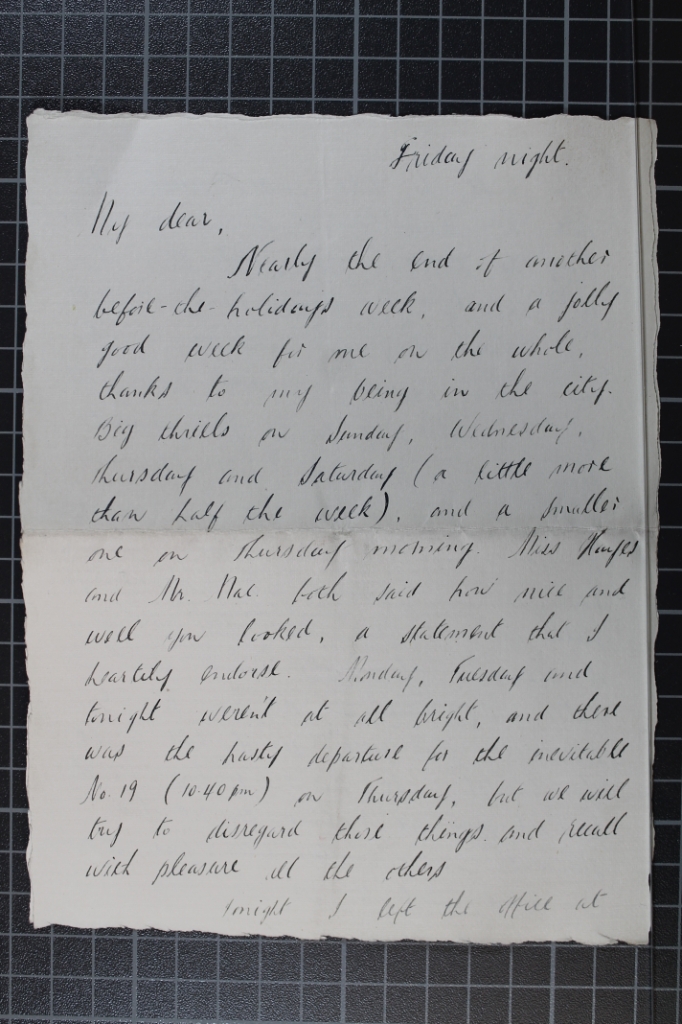 Friday night.
My dear,
Nearly the end of another
before-the-holidays week, and a jolly
good week for me on the whole,
thanks to my being in the city.
Big thrills on Sunday, Wednesday,
Thursday and Saturday (a little more
than half the week), and a smaller
one on Thursday morning. Miss Hayes
and Mr. Mac. both said how nice and
well you looked, a statement that I
heartily endorse. Monday, Tuesday and
tonight weren't at all bright, and there
was the hasty departure for the inevitable
No. 19 (10.40 pm) on Thursday, but we will
try to disregard those things and recall
with pleasure all the others
Tonight I left the office at